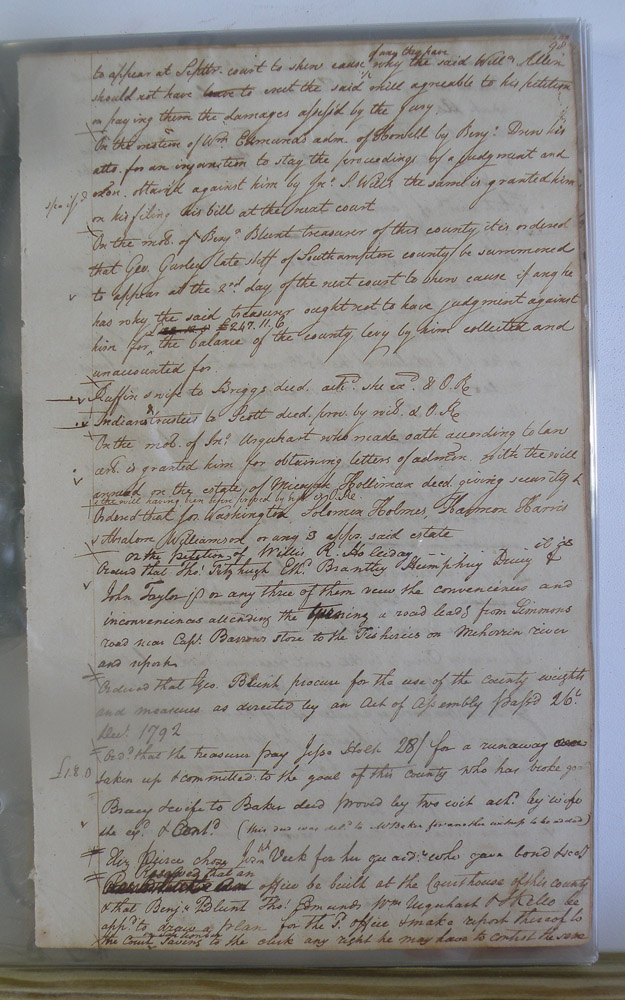 98
if any they have
to appear at Septr. court to shew cause why the said Willm Allen
should not have leave to erect the said mill agreeable to his petition
on paying them the damages assess'd by the Jury
On the motion of Wm Edmunds adm. of Howell by Benjn. Drew his
atto. for an injunction to stay the proceedings of a judgment and
exon. obtain'd against him by Jno. S. Wills the same is granted him
on his filing his bill at the next court
On the mot. of Benjn Blunt treasurer of this county it is ordered
that Geo. Gurley late shff of Southampton county be summoned
to appear at the 2nd. day of the next court to shew cause if any he
has why the said treasurer ought not to have judgment against
£247.11.6
him for the balance of the county levy by him collected and
unaccounted for
Ruffin & wife to Briggs deed. ackd. she exd. & O.Re
Indians & trustees to Scott deed. prov. by wits. & O.Re
On the mot. of Jno. Urquhart who made oath according to law
cert. is granted him for obtaining letters of admon. with the will
annexed on the estate of Micajah Holliman deed. giving security &
the will having been before proved by
Ordered that Jos. Washington Solomon Holmes, Harmon Harris
& Absalom Williamson or any 3 appr. said estate
On the petition of Willis R. Holiday it is
Ordered that Thos. Fitzhugh Ethd. Brantley Humphrey Drury &
John Taylor jr or any three of them view the conveniences and
inconveniences attending the turning a road leadg from Simmons
road near Capt. Barrows store to the Fisheries on Meherrin river
and report
Ordered that Geo. Blunt procure for the use of the county weights
and measures as directed by an Act of Assembly pass'd 26th.
Decr. 1792
£1.8.0
Ord. that the treasurer pay Jesse Holt 28/ for a runaway
taken up & committed to the goal of this county who has broke goal
Bracy & wife to Baker deed proved by two wit ackd. by wife
the exd. & Contd. (this deed was deld. to Mr Baker for another witness to be added)
Eliz. Pierce chose Jordn Vick for her guardn. who gave bond & secy
Resolved that an
office be built at the Courthouse of this county
& that Benjn Blunt Thos. Edmunds Wm Urquhart & S Kello be
appd. to draw a plan for the office & make report thereof to
the Court Saving to the clerk any right he may have to contest the same